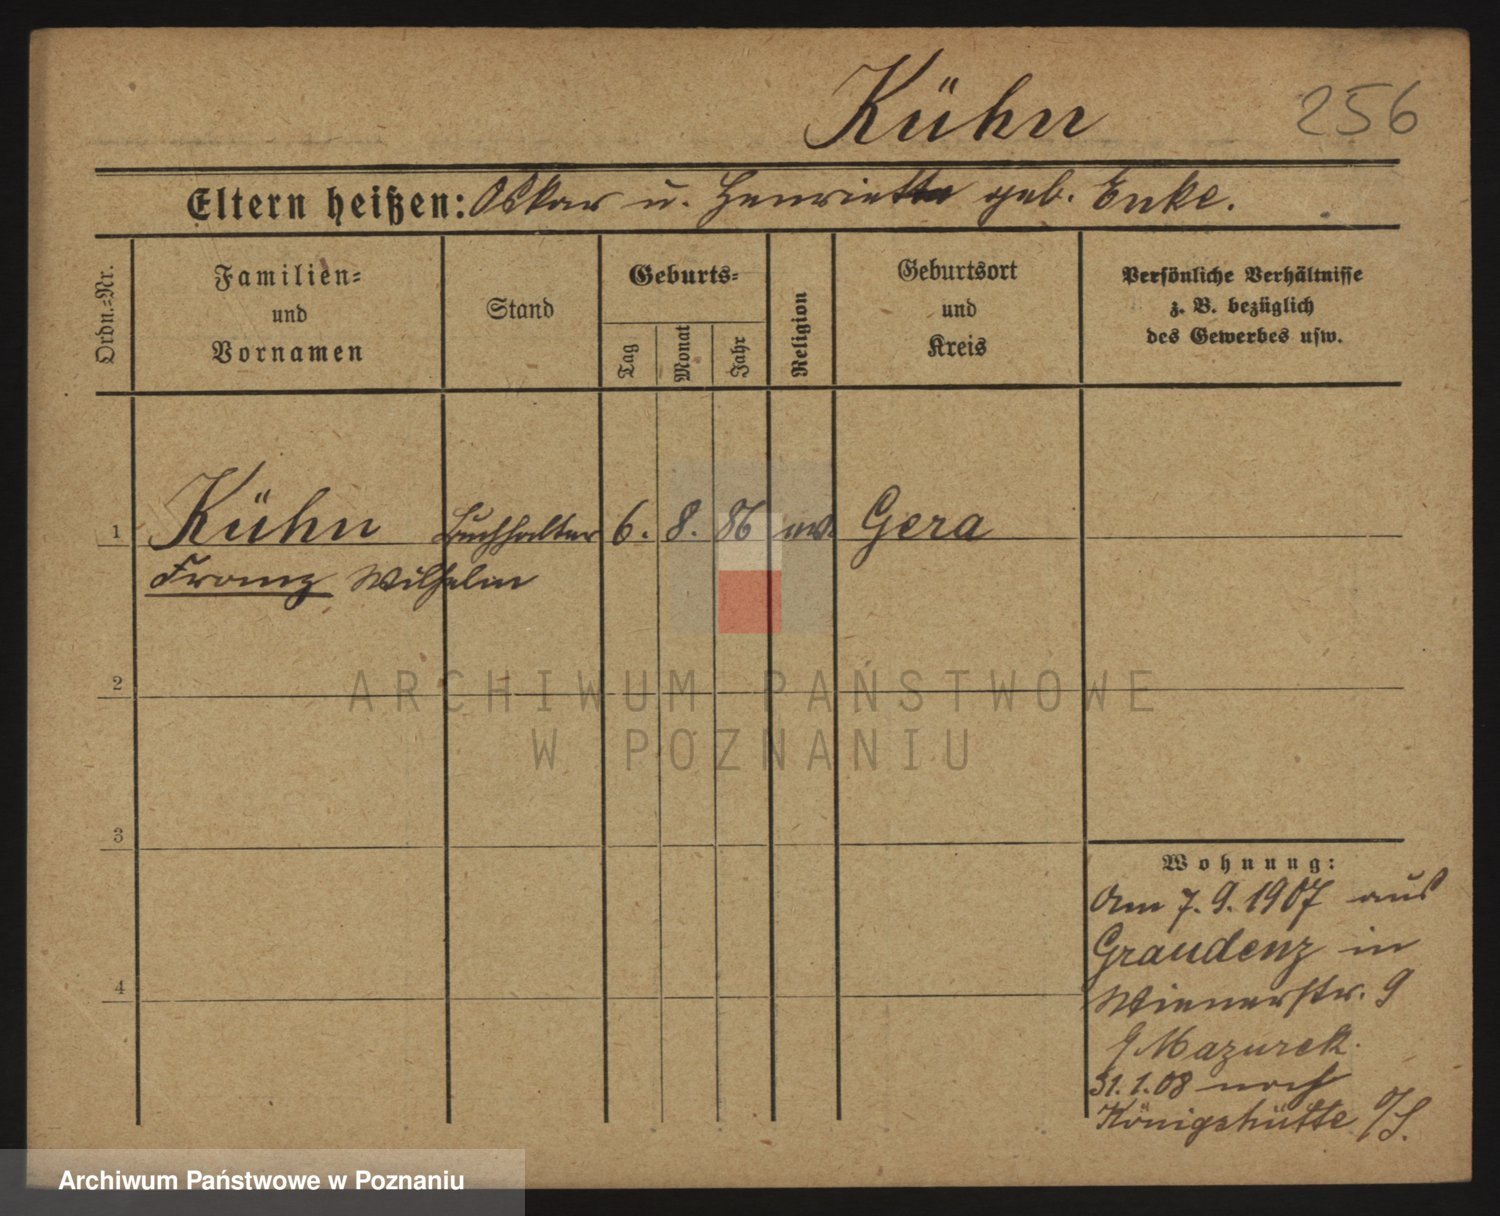 Kühn 256
Eltern heißen: Oskar u. Henriette geb. Enke.
Ordn.=Nr.
Familien=
und
Vornamen
Stand
Geburts=
Tag
Monat
Jahr
Religion
Geburtsort
und
Kreis
Persönliche Verhältnisse
z. B. bezüglich
des Gewerbes usw.
1 Kühn Buchhalter 6. 8. 86 ev. Gera
Franz Wilhelm
2
3
4
Wohnung:
Am 7.9.1907 aus
Graudenz in
Wienerstr. 9
Mazurek.
31.1.08 nach
Königshütte O/S.
ARCHIWUM PAŃSTWOWE
W POZNANIU
Archiwum Państwowe w Poznaniu